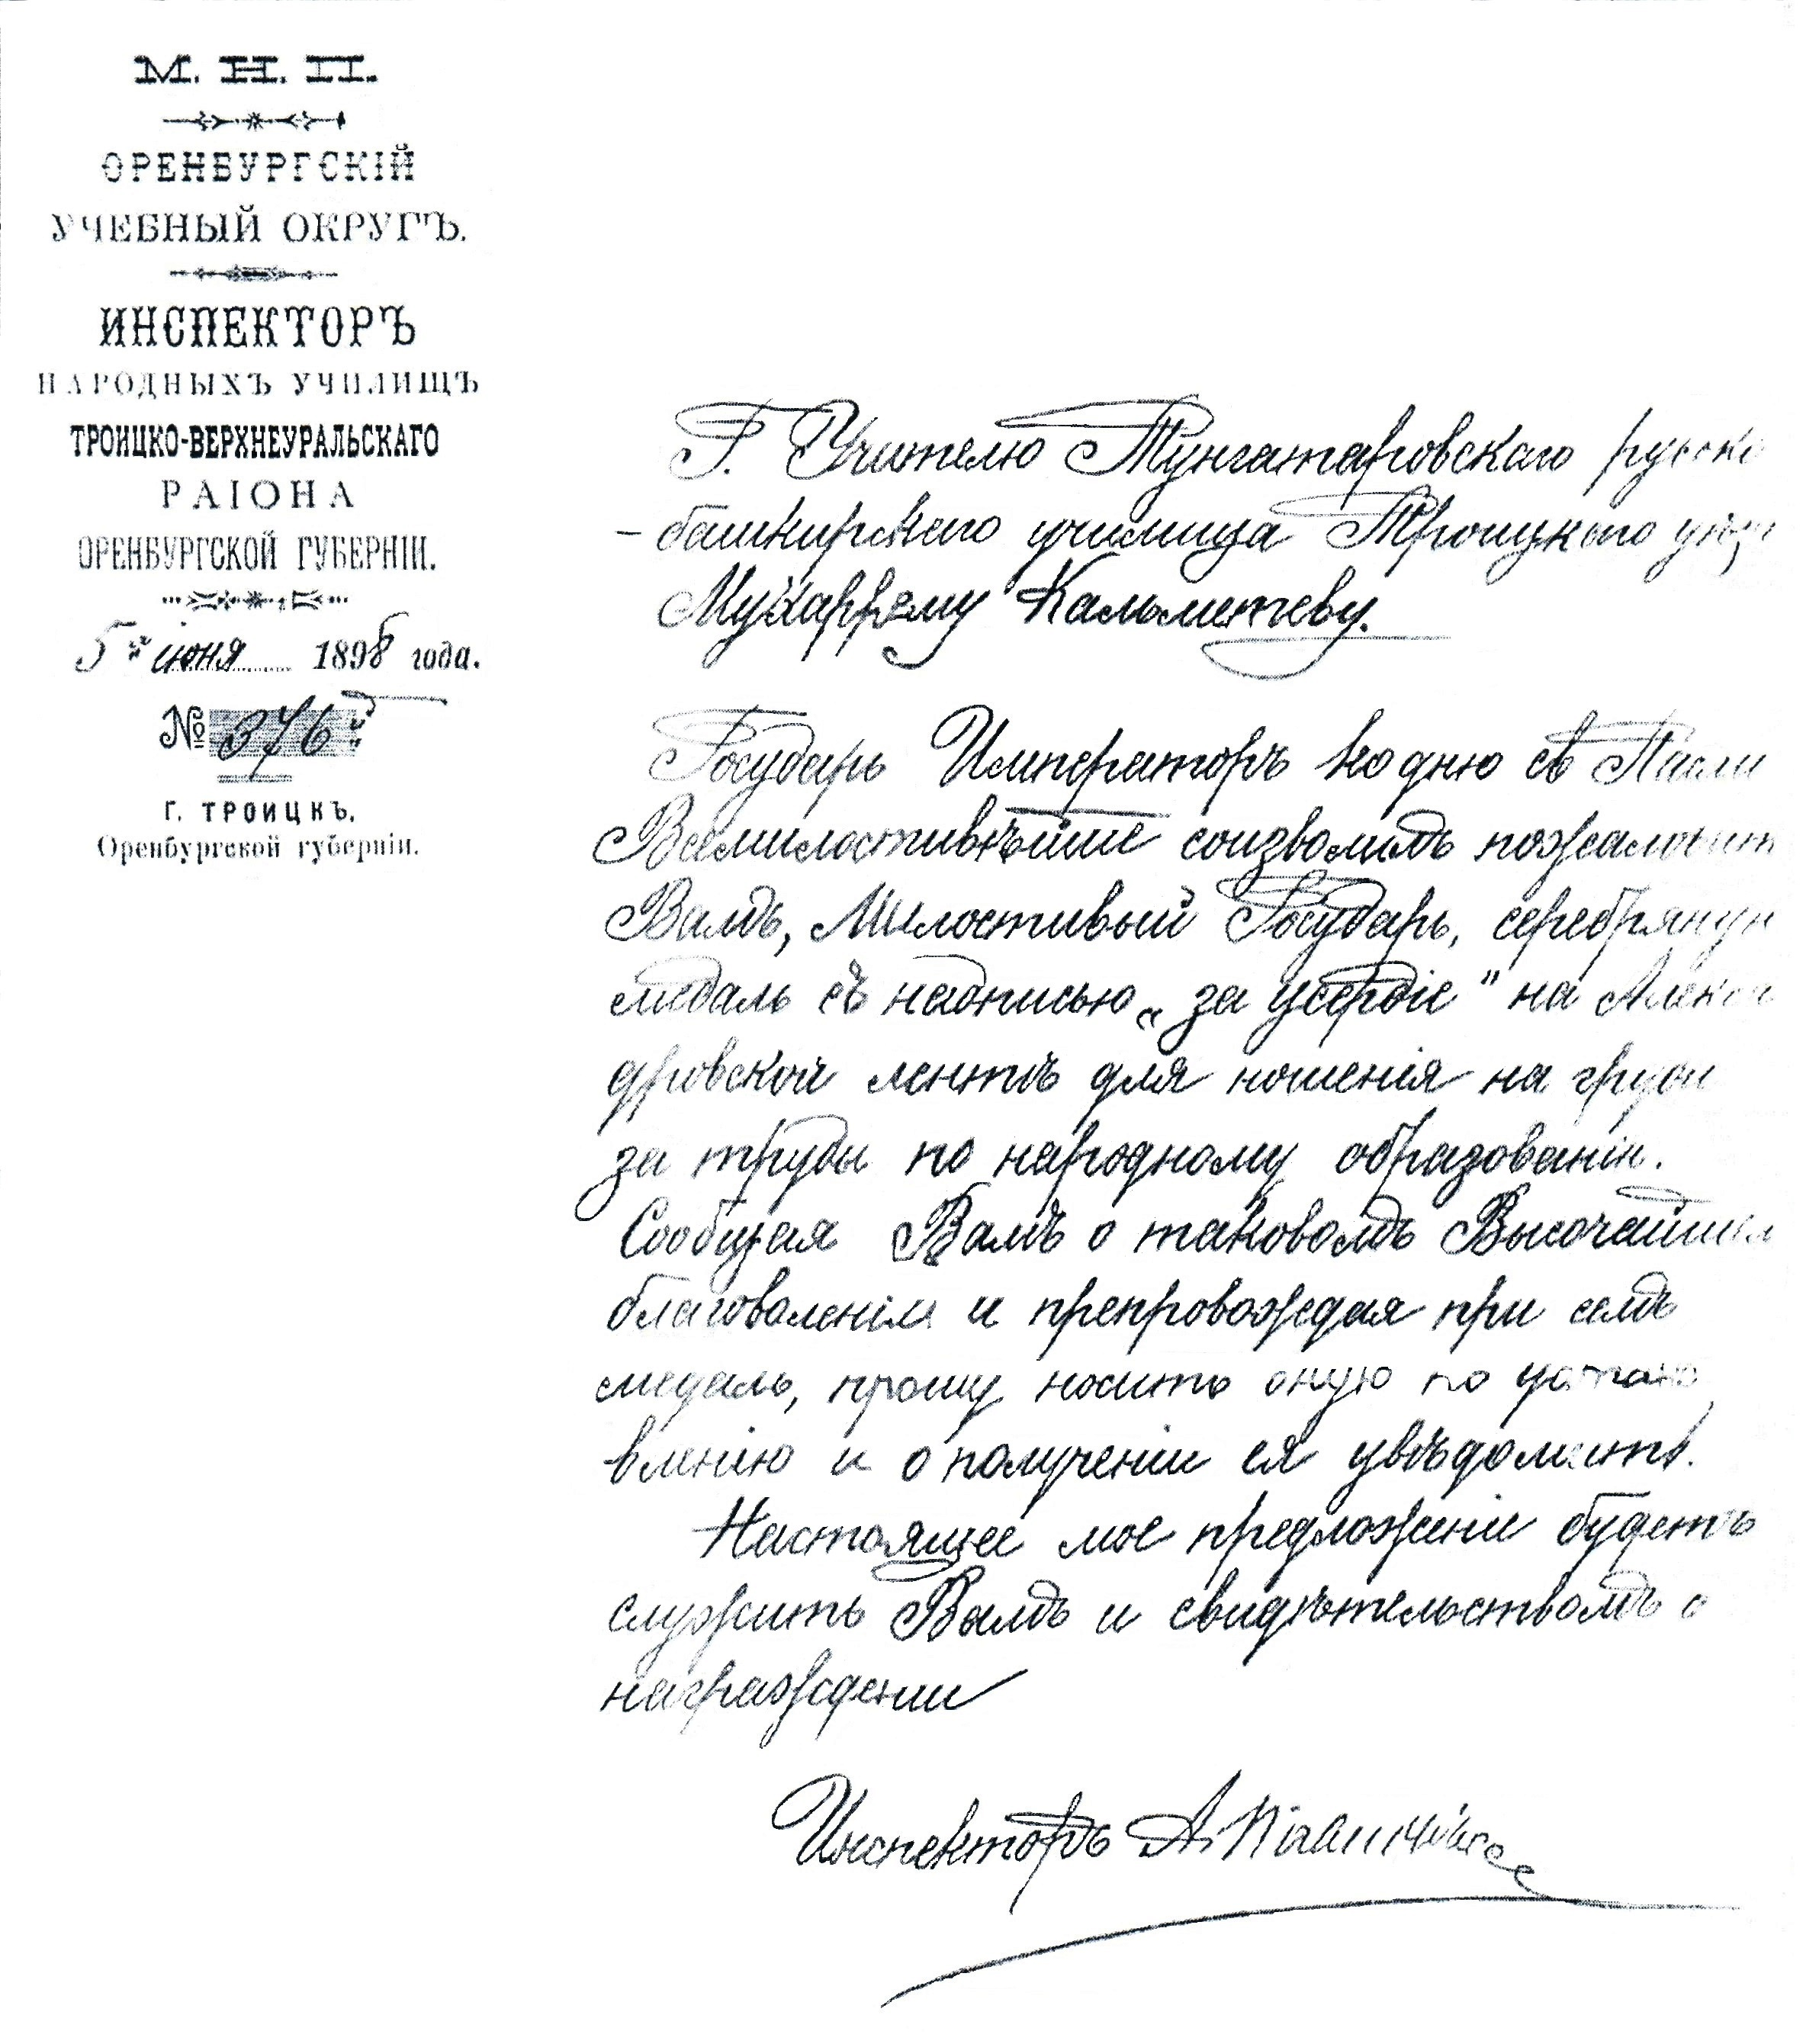 М. Н. П.
ОРЕНБУРГСКІЙ
УЧЕБНЫЙ ОКРУГЪ.
ИНСПЕКТОРЪ
НАРОДНЫХЪ УЧИЛИЩЪ
ТРОИЦКО-ВЕРХНЕУРАЛЬСКАГО
РАІОНА
ОРЕНБУРГСКОЙ ГУБЕРНІИ.
5 іюня 1898 года.
№ 376
Г. ТРОИЦКЪ,
Оренбургской губерніи.
Г. Учителю Тунгатаровскаго русско
-башкирскаго училища Троицкаго
Мухаррему Кальметеву.
Государь Императоръ ко дню св Пасхи
Всемилостивѣйше соизволилъ пожаловать
Вамъ, Милостивый Государь, серебряную
медаль съ надписью „за усердіе" на Алексан
дровской лентѣ для ношенія на груди
за труды по народному образованію.
Сообщая Вамъ о таковомъ Высочайшемъ
благоволеніи и препровождая при семъ
медаль, прошу носить оную по устано
вленію и о полученіи ея увѣдомить.
Настоящее мое предложеніе будетъ
служить Вамъ и свидѣтельствомъ о
награжденіи
Инспекторъ А.